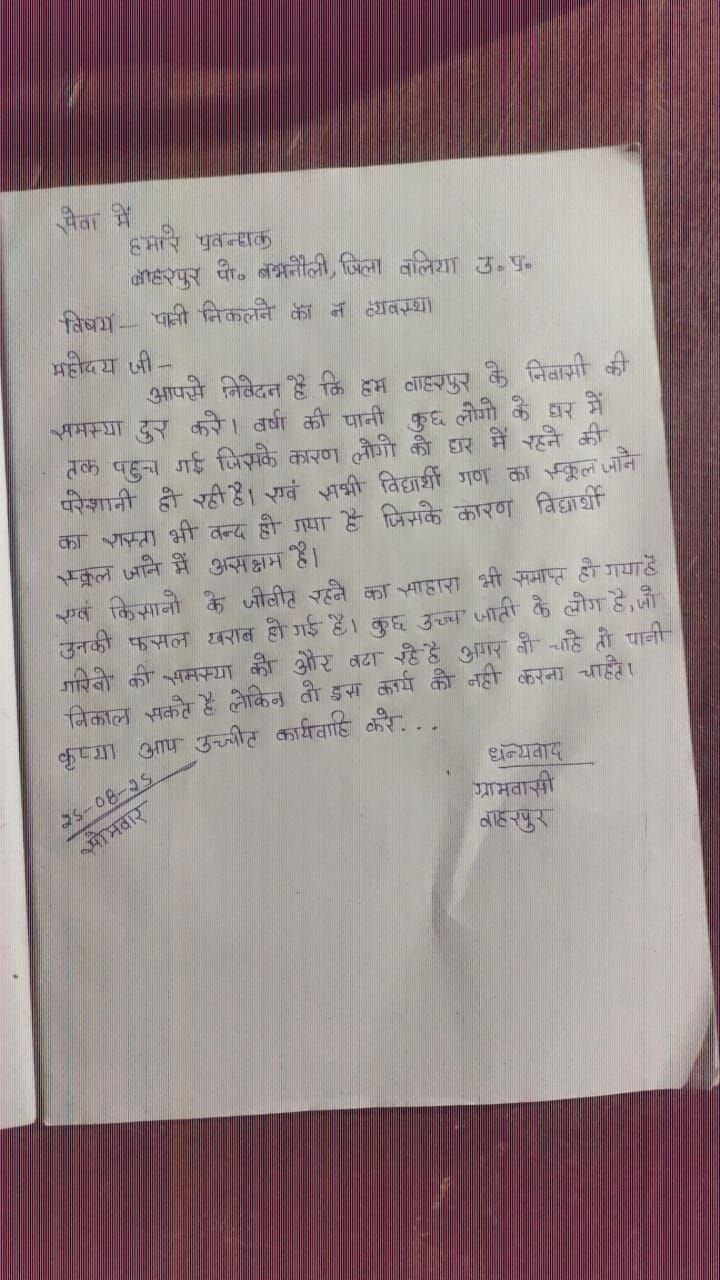 सेवा में
हमारे प्रबन्धक
बाहरपुर पो. बभनौली, जिला बलिया उ. प्र.
विषय - पानी निकलने का न व्यवस्था
महोदय जी -
आपसे निवेदन है कि हम बाहरपुर के निवासी की
समस्या दुर करे। वर्षा की पानी कुछ लोगो के घर में
तक पहुच गई जिसके कारण लोगो को घर में रहने की
परेशानी हो रही है। एवं सभी विद्यार्थी गण का स्कूल जाने
का रास्ता भी बन्द हो गया है जिसके कारण विद्यार्थी
स्कूल जाने में असक्षम है।
एवं किसानो के जीवीत रहने का साहारा भी समाप्त हो गया है
उनकी फसल खराब हो गई है। कुछ उच्च जाती के लोग है, जो
गरिबो की समस्या को और बढा रहे है अगर वो चाहे तो पानी
निकाल सकते है लेकिन वो इस कार्य को नही करना चाहते।
कृप्या आप उच्चीत कार्यवाहि करे...
धन्यवाद
ग्रामवासी
बाहरपुर
25-08-25
सोमवार